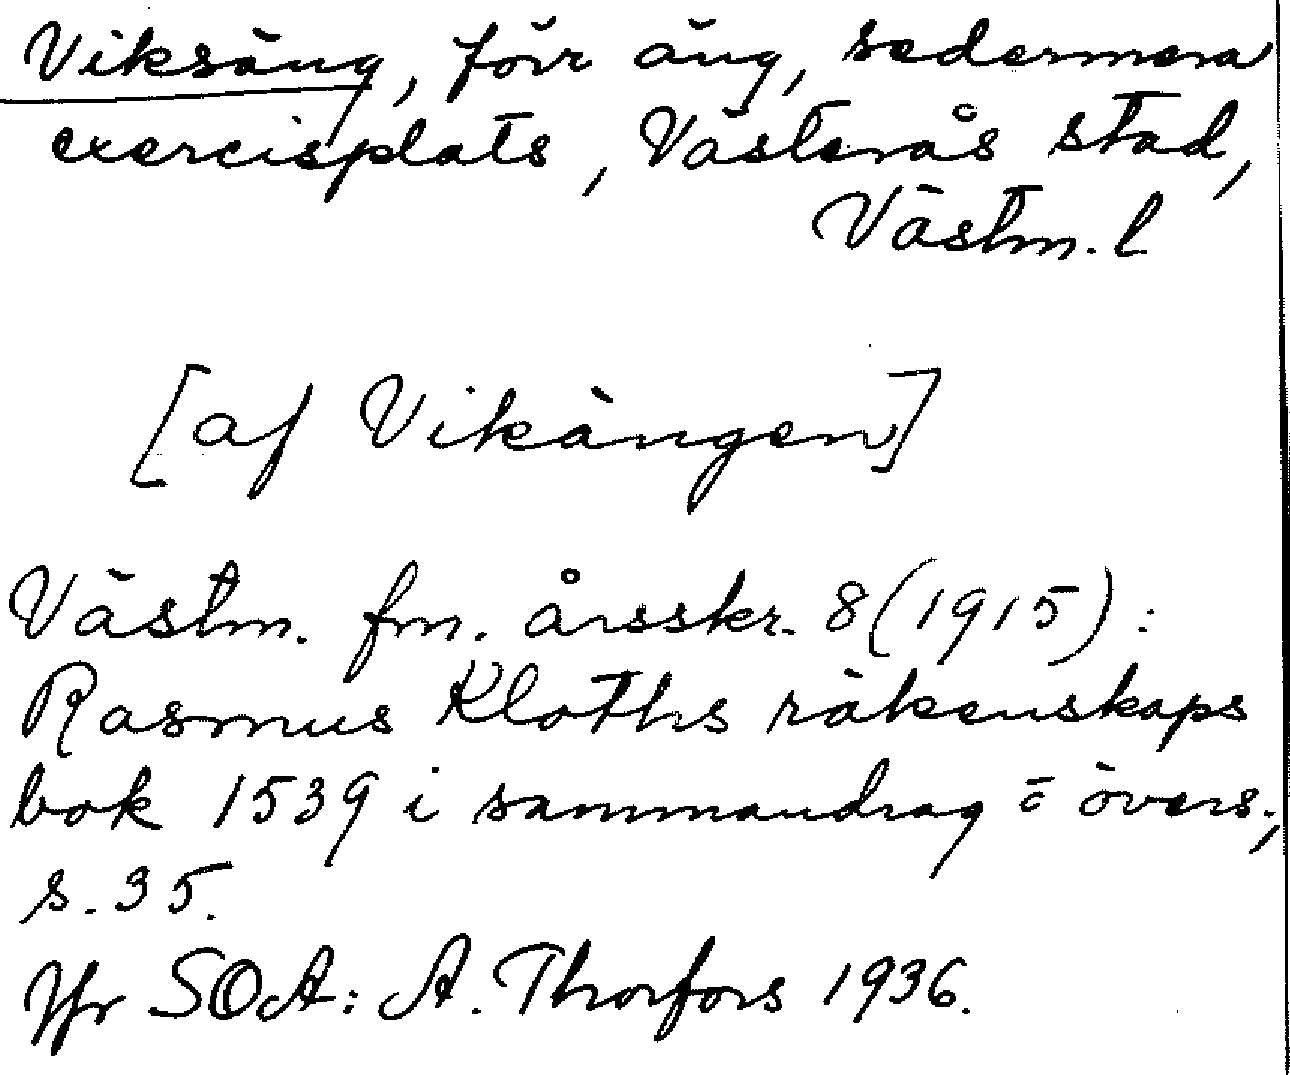 Viksäng, förr äng, sedermera
exercisplats, Västerås stad,
Västm. l
[af Vikängen]
Västm. fm. årsskr. 8 (1915):
Rasmus Kloths räkenskaps
bok 1539 i sammandrag o övers.,
s. 35.
Jfr SOA: A. Thorfors 1936.